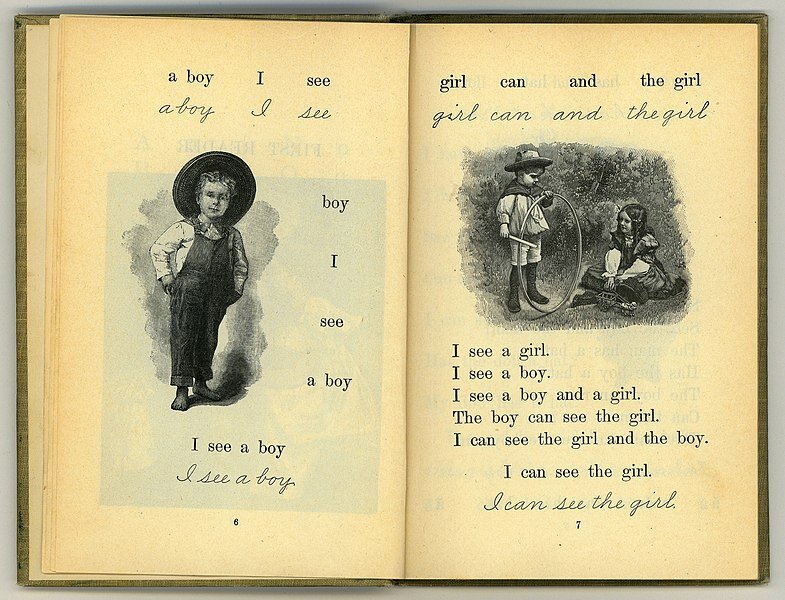 a boy I see
a boy I see
boy
I
see
a boy
I see a boy
I see a boy
6
girl can and the girl
girl can and the girl
I see a girl.
I see a boy.
I see a boy and a girl.
The boy can see the girl.
I can see the girl and the boy.
I can see the girl.
I can see the girl.
7